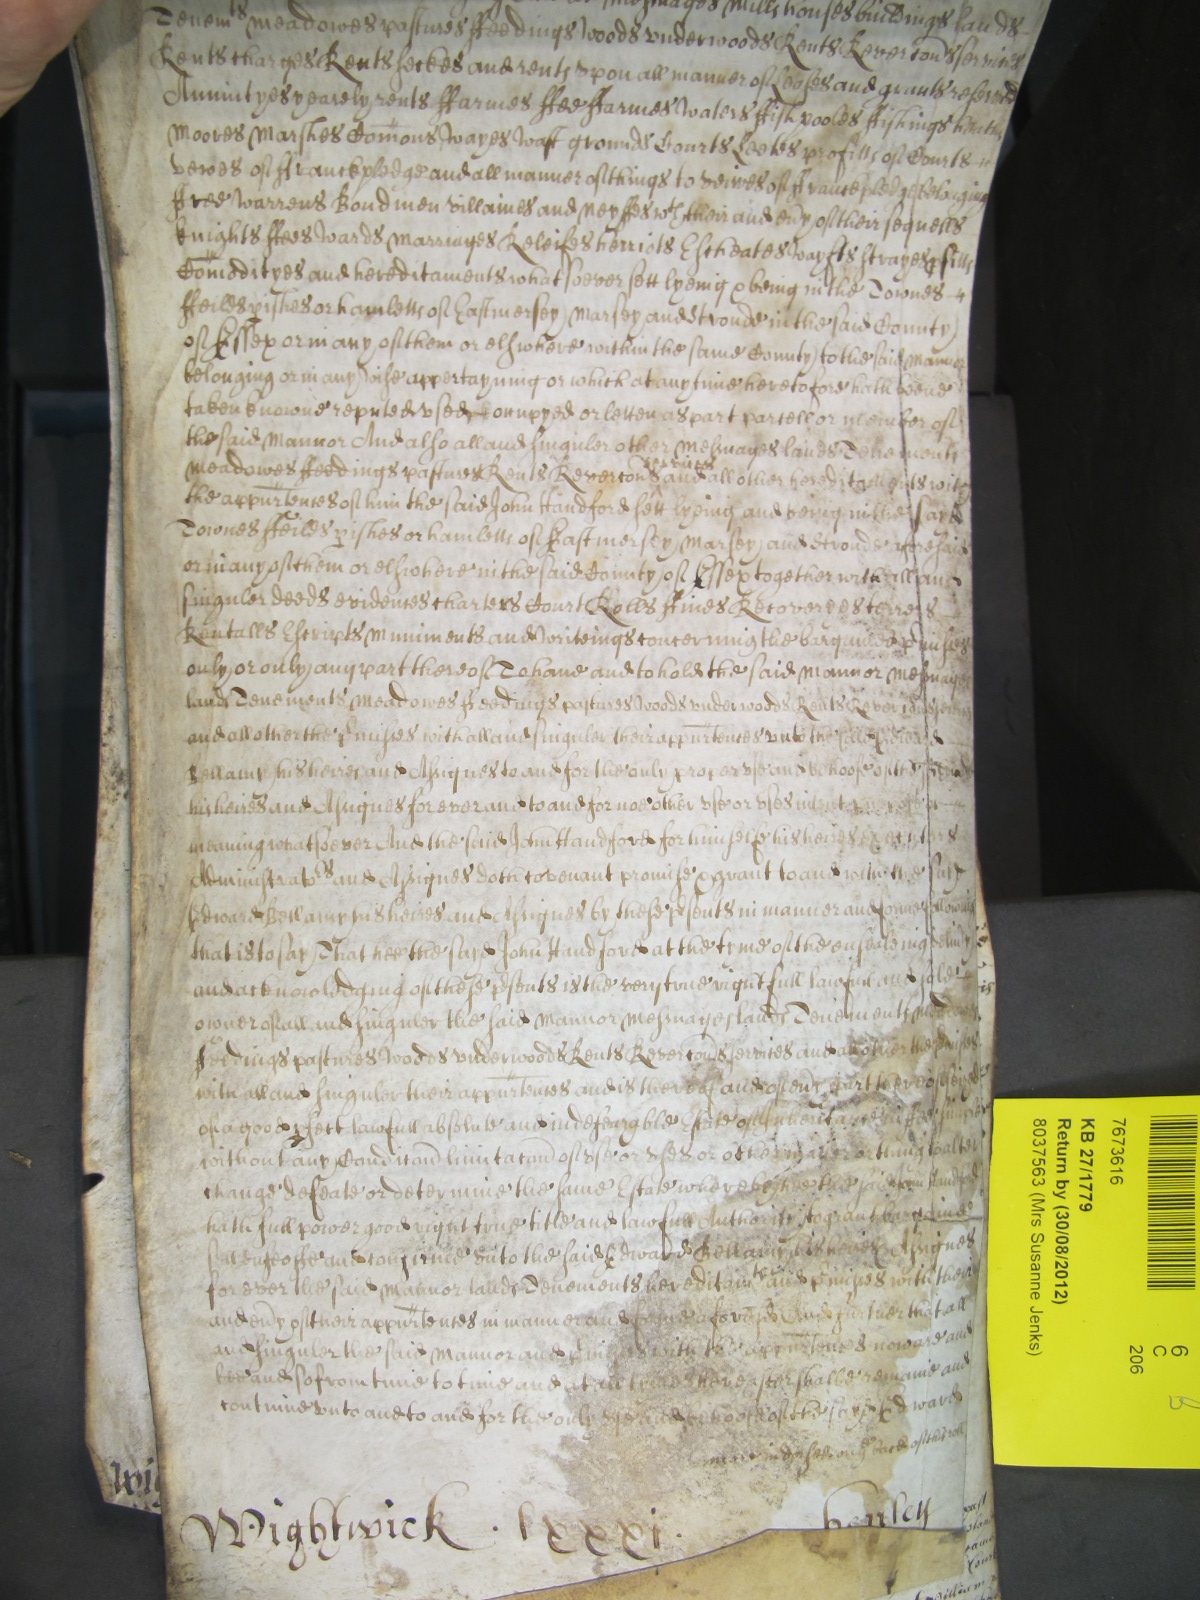 Messuages Mills houses buildings lands
Tenemts meadowes pastures ffeedings Woods vnderwoods Rents Revercons services
Rents charges Rents seckes and rents vpon all manner of Leases and grants reserved
Annuityes yearely rents ffarmes ffee ffarmes Waters ffish pooles ffishings
Moores Marshes Comons Wayes Wast grounds Courts Leetes profitts of Courts
veiwes of ffranckpledge and all manner of things to veiwes of ffranckpledge belonging
ffree Warrens Bondmen villaines and Neyffes wth their and euy of their sequells
Knights ffees Wards Marriages Releifes herriots Escheates Wayfts strayes pfitts
Comodityes and hereditaments whatsoever sett lyeing & being in the Townes
ffeilds pishes or hamletts of Eastmersey Marsey and Stroude in the said County
of Essex or in any of them or elswhere within the same County to the said Mannor
belonging or in any wise appertayning or which at any time heretofore hath beene
taken knowne reputed vsed occupyed or letten as part parcell or member of
the said Mannor And also all and singuler other Mesuages lands Tenements
meadowes ffeedings pastures Rents Revercons services and all other hereditamts with
the appurtences of him the said John Handford sett lyeing and being in the said
Townes ffeilds pishes or hamletts of Eastmersey Marsey and Stroude aforesaid
or in any of them or elswhere in the said County of Essex together with all and
singuler deeds evidences charters Court Rolls ffines Recoveryes terrers
Rentalls Escripts Muniments and Writeings concerning the bargained pmisses
only or only any part thereof To have and to hold the said Mannor Mesuages
lands Tenements Meadowes ffeedings pastures Woods vnderwoods Rents Revercons
and all other the pmisses with all and singuler their appurtences vnto the said Edward
Bellamy his heires and Assignes to and for the only proper vse and behoofe of the said
his heires and Assignes for ever and to and for noe other vse or vses intent
meaning whatsoever And the said John Handford for himselfe his heires Executors
Administrators and Assignes doth covenant promise & grant to and with the said
Edward Bellamy his heires and Assignes by these psents in manner and forme followeing
that is to say That hee the said John Handford at the tyme of the ensealeing
and acknowledging of these psents is the very true rightfull lawfull and sole
owner of all and singuler the said Mannor Mesuages lands Tenements Meadowes
ffeedings pastures Woods vnderwoods Rents Revercons services and all other the pmisses
with all and singuler their appurtences and is thereof and of euy part thereof seized
of a good pfect lawfull absolute and indefeazable Estate of Inheritance in fee simple
without any Condicon limitacon of vse or vses or other matter or thing to alter
change defeate or determine the same Estate the said John Handford
hath full power good right true title and lawfull Authority to grant bargaine
sell enfeoffe and confirme vnto the said Edward Bellamy his heires & Assignes
for ever the said Mannor lands Tenements hereditamts and pmisses with their
and euy of their appurtences in manner and forme aforesaid And further that all
and singuler the said Mannor and pmisses with the appurtences now are and
bee and so from time to time and at all times hereafter shall remaine and
continue vnto and to and for the only vse and behoofe of the said Edward
Wightwick . lxxxj . henley
7673616
KB 27/1779
Return by (30/08/2012)
8037563 (Mrs Susanne Jenks)
6
C
206